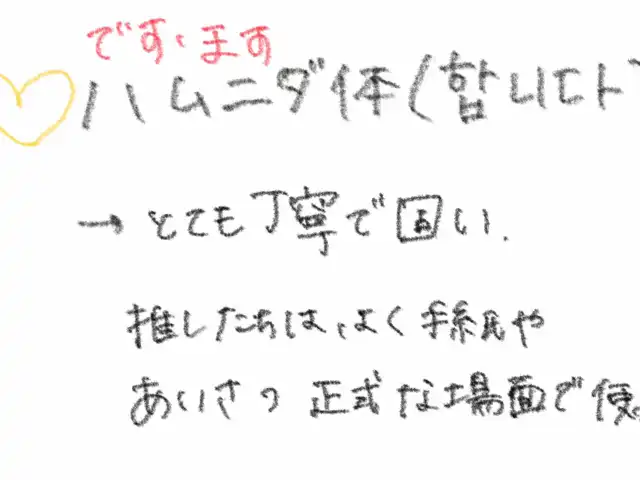 です、ます
ハムニダ体(합니다
→ とても丁寧で固い.
推したちは、よく手紙や
あいさつ 正式な場面で使